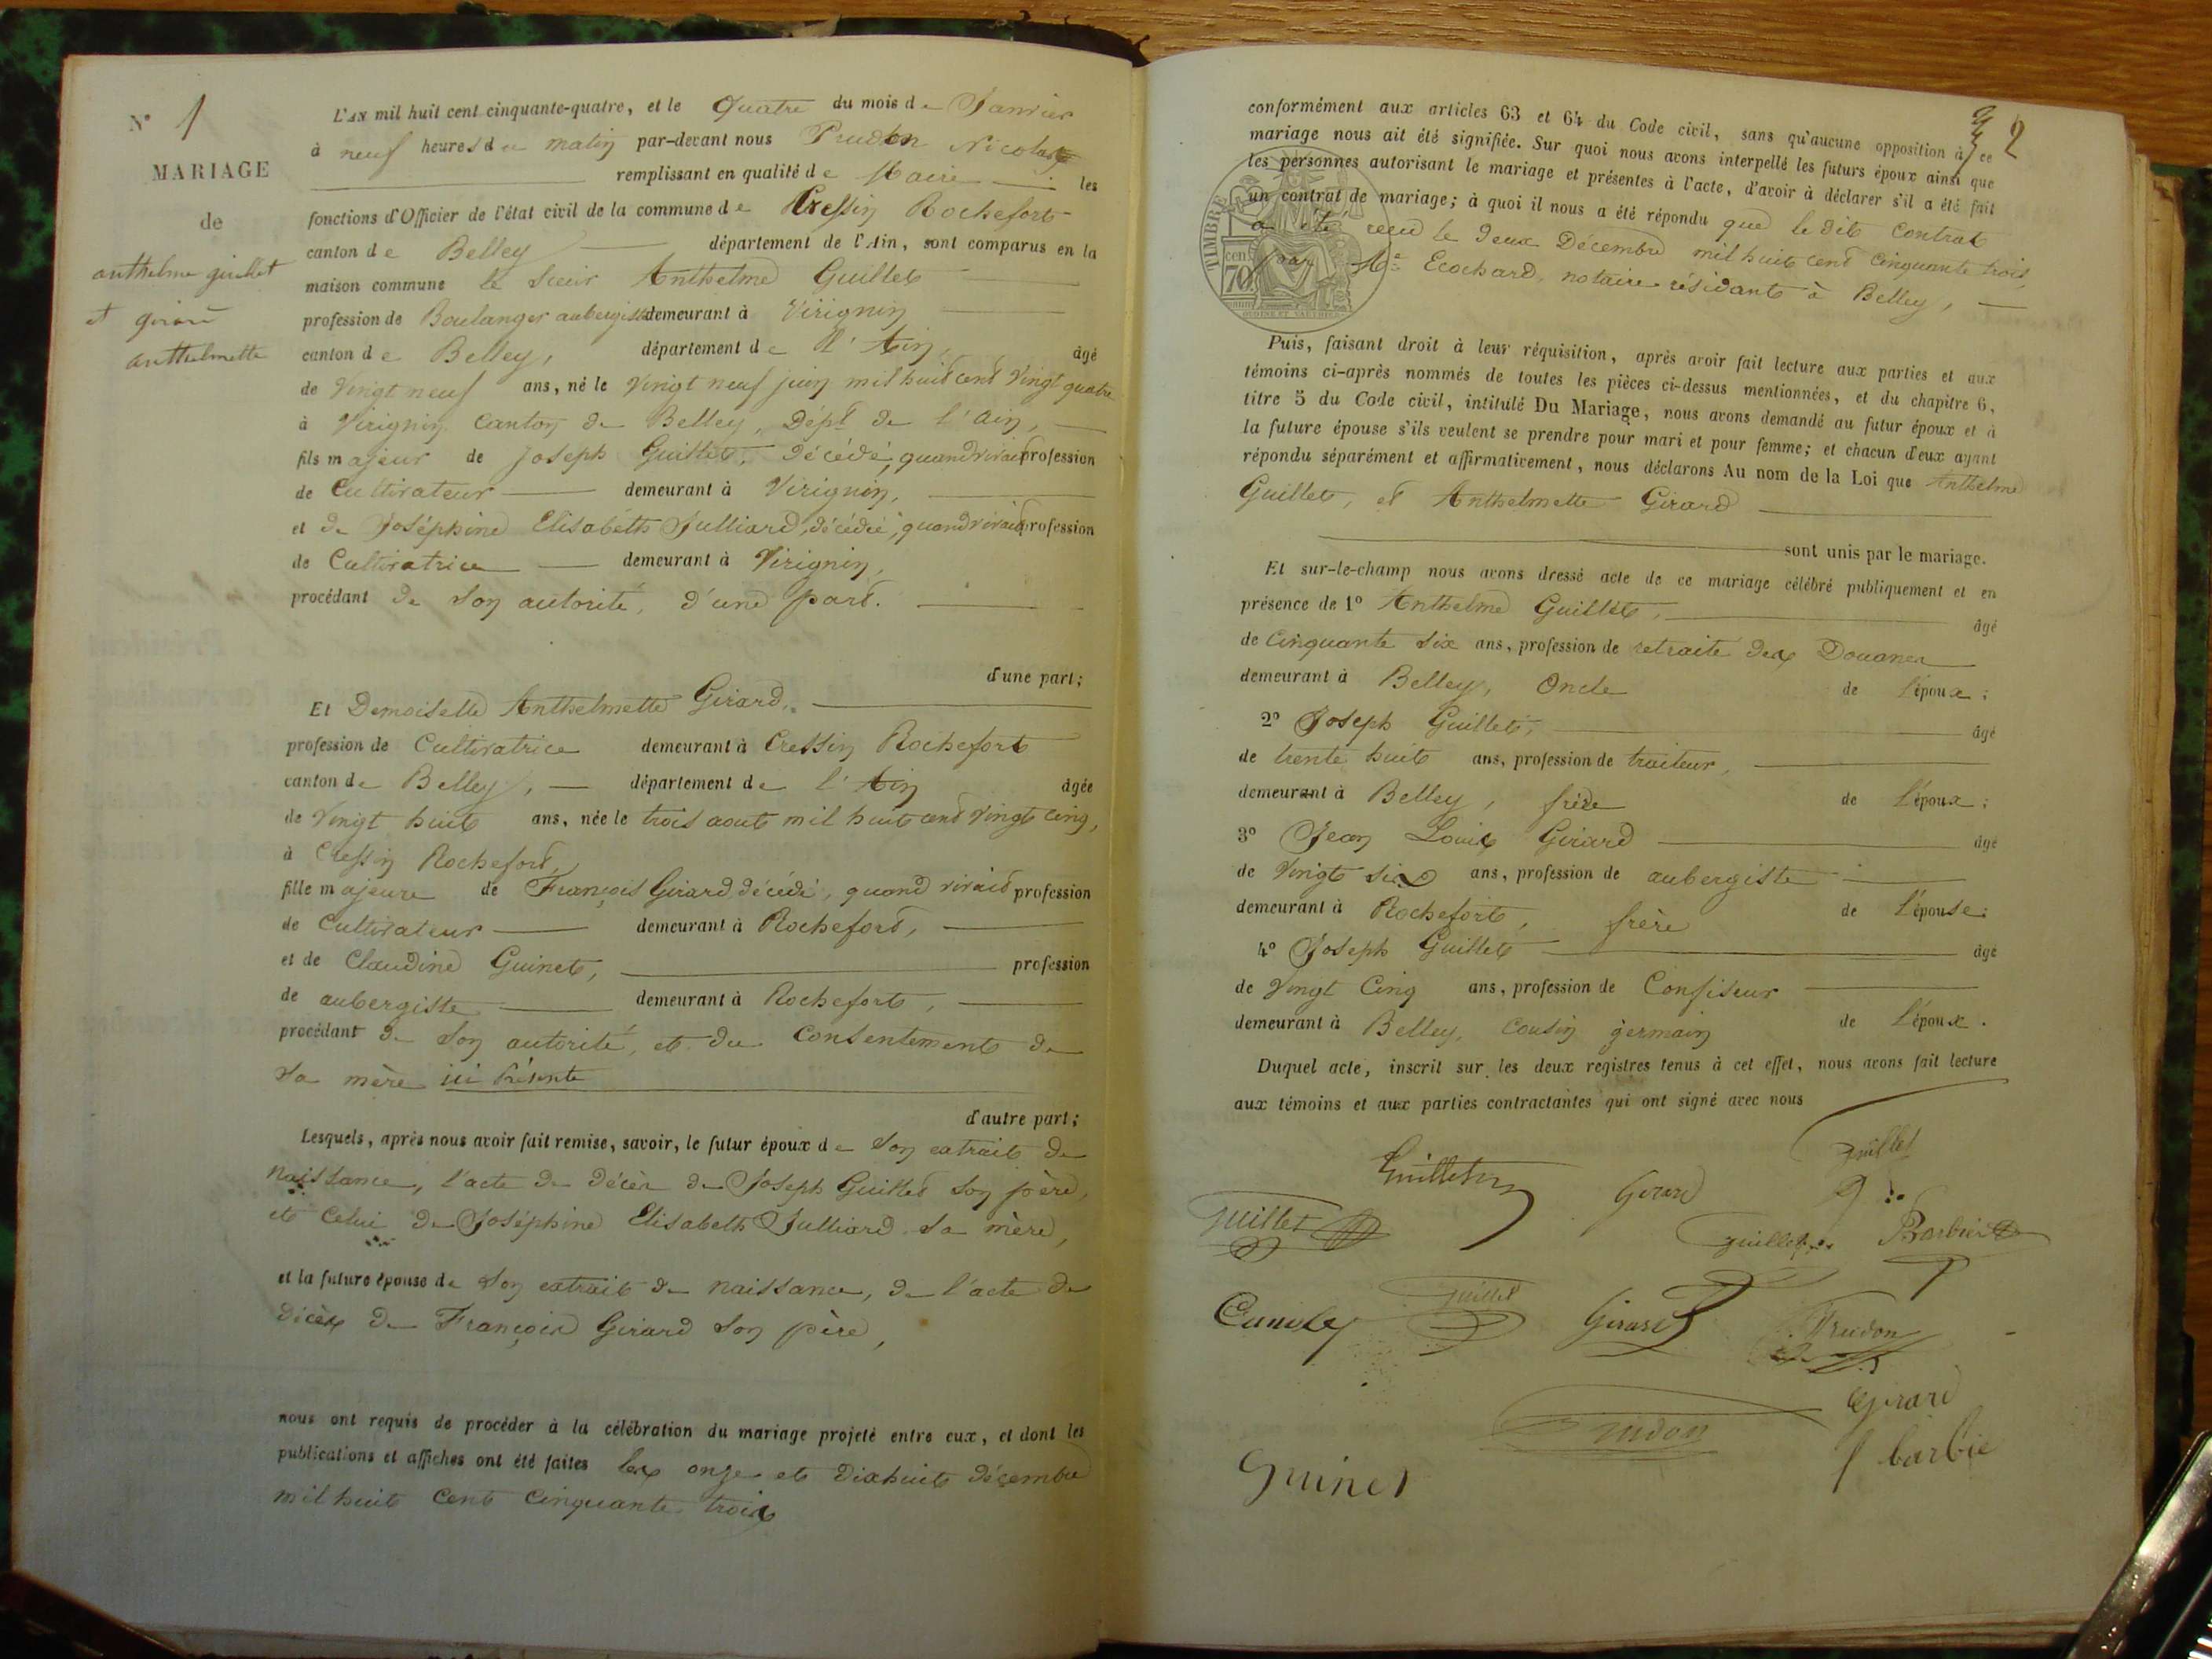 N° 1
MARIAGE
de
anthelme guillet
et girard
anthelmette
L'AN mil huit cent cinquante-quatre, et le Quatre du mois de Janvier
à neuf heures du matin par-devant nous Prudon Nicolas
remplissant en qualité de Maire les
fonctions d'Officier de l'état civil de la commune de Cressin Rochefort
canton de Belley département de l'Ain, sont comparus en la
maison commune le sieur Anthelme Guillet
profession de Boulanger aubergiste demeurant à Virignin
canton de Belley, département de l'Ain, âgé
de Vingt neuf ans, né le Vingt neuf juin mil huit cent Vingt quatre
à Virignin canton de Belley, Dépt de l'ain,
fils majeur de Joseph Guillet, décédé, quand vivait profession
de Cultivateur demeurant à Virignin,
et de Joséphine Elisabeth Julliard, décédée, quand vivait profession
de Cultivatrice demeurant à Virignin,
procédant de son autorité, d'une part.
d'une part;
Et Demoiselle Anthelmette Girard,
profession de Cultivatrice demeurant à Cressin Rochefort
canton de Belley, département de l'Ain âgée
de Vingt huit ans, née le trois aout mil huit cent vingt cinq,
à Cressin Rochefort,
fille majeure de François Girard, décédé, quand vivait profession
de Cultivateur demeurant à Rochefort,
et de Claudine Guinet, profession
de aubergiste demeurant à Rochefort,
procédant de son autorité, et du consentement de
sa mère ici Présente
d'autre part;
Lesquels, après nous avoir fait remise, savoir, le futur époux de son extrait de
naissance, l'acte de décès de Joseph Guillet son père,
et celui de Joséphine Elisabeth Julliard sa mère,
et la future épouse de son extrait de naissance, de l'acte de
décès de François Girard son père,
nous ont requis de procéder à la célébration du mariage projeté entre eux, et dont les
publications et affiches ont été faites les onze et dixhuit décembre
mil huit cent cinquante trois
2
conformément aux articles 63 et 64 du Code civil, sans qu'aucune opposition à ce
mariage nous ait été signifiée. Sur quoi nous avons interpellé les futurs époux ainsi que
les personnes autorisant le mariage et présentes à l'acte, d'avoir à déclarer s'il a été fait
un contrat de mariage; à quoi il nous a été répondu que le dit contrat
a été reçu le deux Décembre mil huit cent cinquante trois,
par Me Ecochard, notaire résidant à Belley,
TIMBRE
cen
70
Puis, faisant droit à leur réquisition, après avoir fait lecture aux parties et aux
témoins ci-après nommés de toutes les pièces ci-dessus mentionnées, et du chapitre 6,
titre 5 du Code civil, intitulé Du Mariage, nous avons demandé au futur époux et à
la future épouse s'ils veulent se prendre pour mari et pour femme; et chacun d'eux ayant
répondu séparément et affirmativement, nous déclarons Au nom de la Loi que Anthelme
Guillet, et Anthelmette Girard
sont unis par le mariage.
Et sur-le-champ nous avons dressé acte de ce mariage célébré publiquement et en
présence de 1° Anthelme Guillet, âgé
de Cinquante six ans, profession de retraité des Douanes
demeurant à Belley, Oncle de l'époux;
2° Joseph Guillet, âgé
de trente huit ans, profession de traiteur,
demeurant à Belley, frère de l'époux;
3° Jean Louis Girard âgé
de Vingt six ans, profession de aubergiste
demeurant à Rochefort, frère de l'épouse;
4° Joseph Guillet âgé
de Vingt Cinq ans, profession de Confiseur
demeurant à Belley, cousin germain de l'époux.
Duquel acte, inscrit sur les deux registres tenus à cet effet, nous avons fait lecture
aux témoins et aux parties contractantes qui ont signé avec nous
guillet
Girard
guillet
guillet
guillet
Girard
Prudon
Girard
Prudon
barbie
Guinet